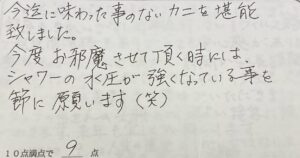 今迄に味わった事のないカニを堪能
致しました。
今度お邪魔させて頂く時には、
シャワーの水圧が強くなっている事を
節に願います(笑)
10点満点で 9 点